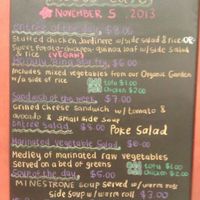 NOVEMBER 5, 2013
$8.00
Stuffed chicken served w/side salad & rice OR
Sweet Potato-chicken-quinoa loaf w/side salad
& rice (VEGAN)
$6.00
Includes mixed vegetables from our Organic Garden
w/a side of rice
tofu $1.00
Chicken $2.00
Sandwich of the week $7.00
Grilled Cheese Sandwich w/ tomato &
avocado & small side soup
Entree Salad $8.00 Poke Salad
Marinated Vegetable Salad $6.00
Medley of marinated raw vegetables
Served on a bed of greens
tofu $1.00
Chicken $2.00
Soup of the day $5.00
MINESTRONE soup served w/warm rolls
side soup w/warm roll $3.00